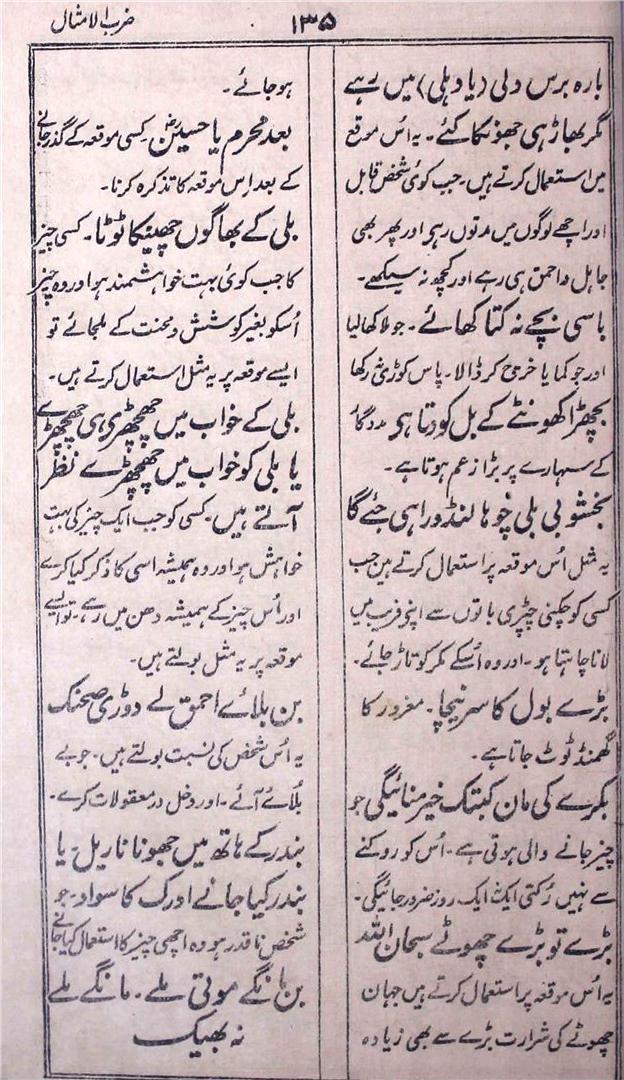 ضرب الامثال
۱۳۵
بارہ برس دلی (یا دہلی) میں رہے
مگر بھاڑ ہی جھونکا کئے۔ یہ اُس موقع
میں استعمال کرتے ہیں۔ جب کوئی شخص قابل
اور اچھے لوگوں میں مدتوں رہی اور پھر بھی
جاہل و احمق ہی رہے اور کچھ نہ سیکھے۔
باسی بچے نہ کتا کھائے۔ جو ملا کھا لیا
اور جو کمایا خرچ کر ڈالا۔ پاس کوڑی نہ رکھا
بچھڑا کھونٹے کے بل کودتا ہی مددگار
کے سہارے پر بڑا زعم ہوتا ہے۔
بخشو بی بلی چوہا لنڈورا ہی جئے گا
یہ مثل اُس موقعہ پر استعمال کرتے ہین جب
کسی کو چکنی چپڑی باتوں سے اپنی فریب میں
لانا چاہتا ہو۔ اور وہ اُسکے مکر کو تاڑ جائے۔
بڑے بول کا سر نیچا۔ مغرور کا
گھمنڈ ٹوٹ جاتا ہے۔
بکرے کی مان کبتک خیر منائیگی جو
چیز جانے والی ہوتی ہے۔ اُس کو روکنے
سے نہیں رُکتی ایک نہ ایک روز ضرور جائیگی۔
بڑے تو بڑے چھوٹے سبحان اللہ
یہ اُس موقعہ پر استعمال کرتے ہیں جہان
چھوٹے کی شرارت بڑے سے بھی زیادہ
ہو جائے۔
بعد محرم یا حسینؓ۔ کسی موقعہ کے گذر جانے
کے بعد اِس موقعہ کا تذکرہ کرنا۔
بلی کے بھاگوں چھینکا ٹوٹا۔ کسی چیز
کا جب کوئی بہت خواہشمند ہو اور وہ چیز
اُسکو بغیر کوشش و محنت کے ملجائے تو
ایسے موقعہ پر یہ مثل استعمال کرتے ہیں۔
بلی کے خواب میں چھیچھڑی ہی چھیچھڑے
یا بلی کو خواب میں چھیچھڑے نظر
آتے ہیں۔ کسی کو جب ایک چیز کی بہت
خواہش ہو اور وہ ہمیشہ اسی کا ذکر کیا کرے
اور اُس چیز کے ہمیشہ دھن میں رہے۔ تو ایسے
موقعہ پر یہ مثل بولتے ہیں۔
بن بلائے احمق لے دوڑی صحنک
یہ اُس شخص کی نسبت بولتے ہیں۔ جو بے
بُلائے آئے۔ اور دخل در معقولات کرے۔
بندر کے ہاتھ میں جھونا ناریل۔ یا
بندر کیا جانے ادرک کا سواد۔ جو
شخص ناقدر ہو وہ اچھی چیز کا استعمال کیا جانے
بن مانگے موتی ملے۔ مانگے ملے
نہ بھیک